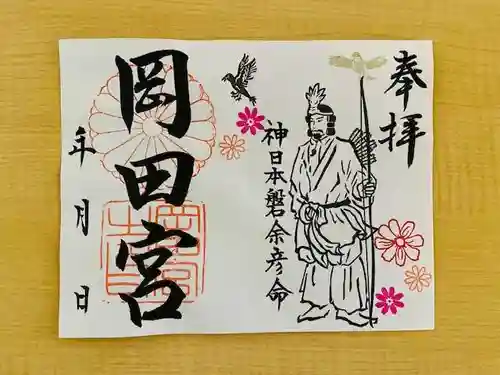 奉拝
神日本磐余彦命
岡田宮
年月日